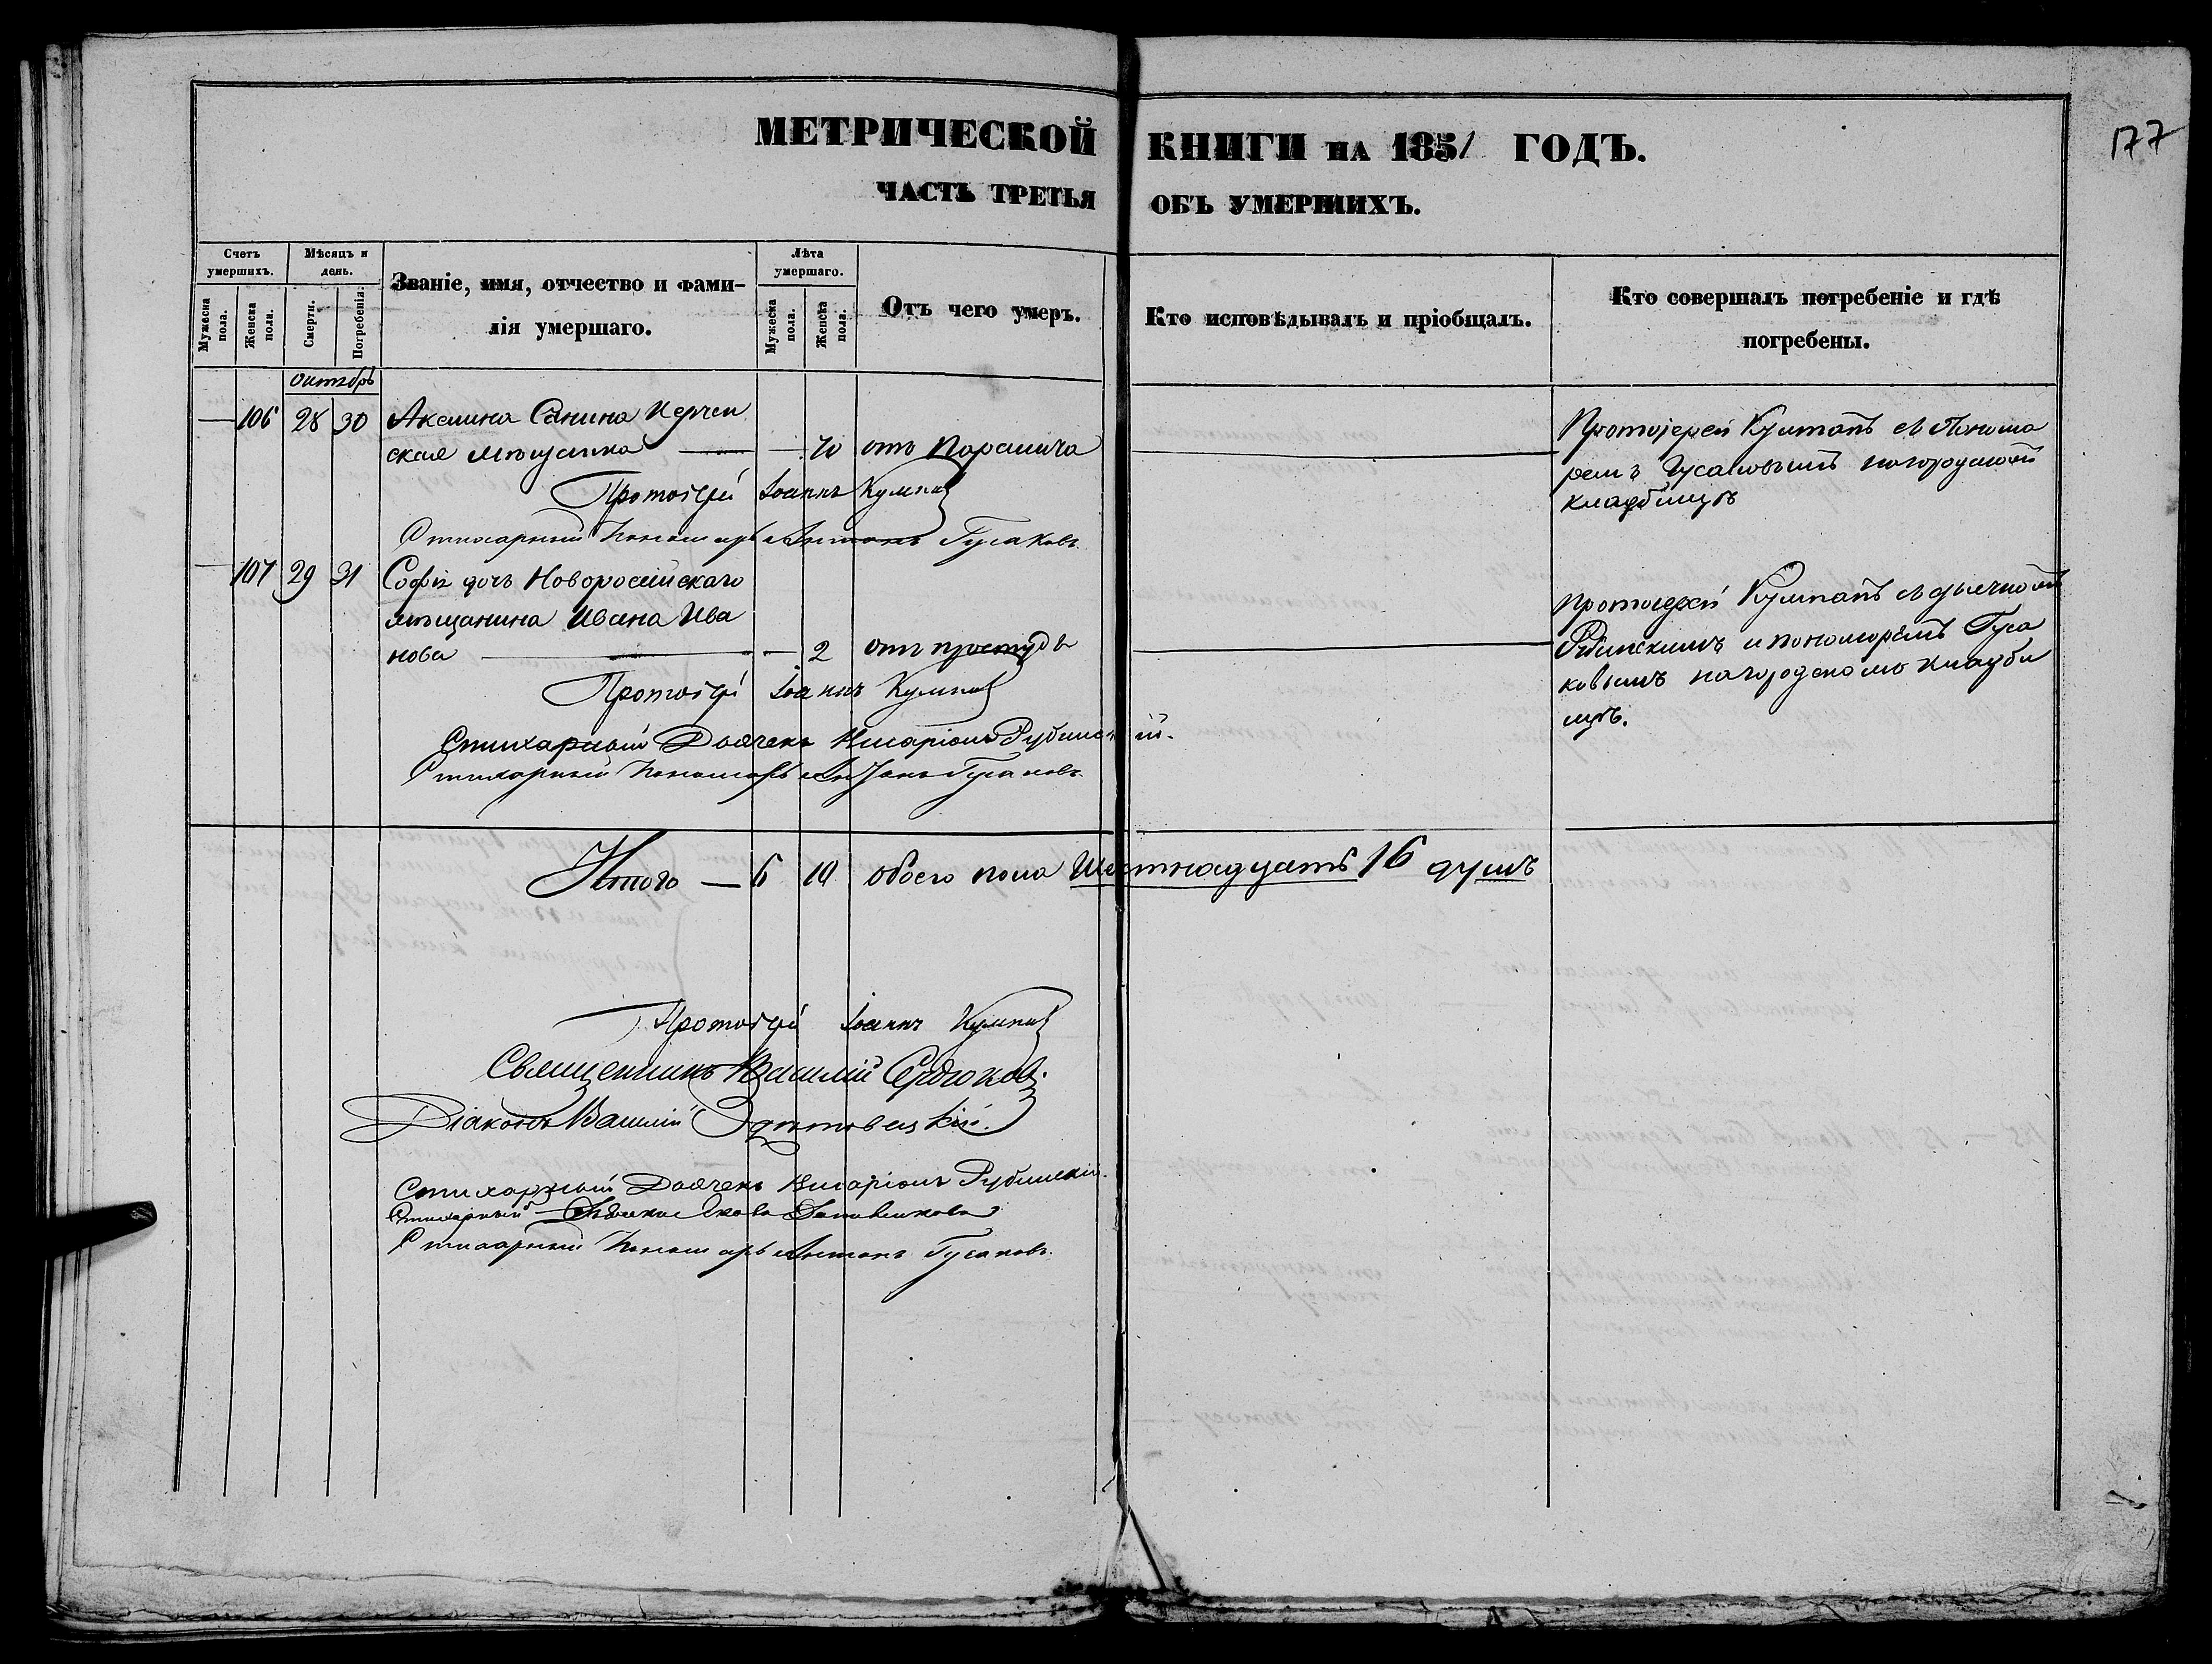 177
МЕТРИЧЕСКОЙ КНИГИ НА 1851 ГОДЪ.
ЧАСТЬ ТРЕТЬЯ ОБЪ УМЕРШИХЪ.
Счетъ умершихъ.
Мужеска пола.
Женска пола.
Мѣсяцъ и день.
Смерти.
Погребенія.
Званіе, имя, отчество и фами-
лія умершаго.
Лѣта умершаго.
Мужеска пола.
Женска пола.
Отъ чего умеръ.
Кто исповѣдывалъ и пріобщалъ.
Кто совершалъ погребеніе и гдѣ
погребены.
октябрь
— 106 28 30 Акелина Санина Керчен
ская мѣщанка — — 70 отъ паралича
Протоіерей Іоаннъ Кумпанъ
Стихарный Пономарь Антонъ Гусаковъ
Протоіерей Кумпанъ с Понома
ремъ Гусаковымъ на городском
кладбищѣ
— 107 29 31 Софія дочь Новоросійскаго
мѣщанина Ивана Ива
нова — — 2 отъ простуды
Протоіерей Іоаннъ Кумпанъ
Стихарный Дьячекъ Иларіонъ Рубинскій.
Стихарный Пономарь Антонъ Гусаковъ
Протоіерей Кумпанъ с дьячком
Рубинскимъ и пономоремъ Гуса
ковымъ на городскомъ кладби
щѣ.
Итого — 6 10 обоего пола Шестнадцать 16 душъ
Протоіерей Іоаннъ Кумпанъ
Священникъ Василій Сердюков.
Діаконъ Василій
Стихарный Дьячекъ Иларіонъ Рубинскій.
Стихарный
Стихарный Пономарь Антонъ Гусаковъ.